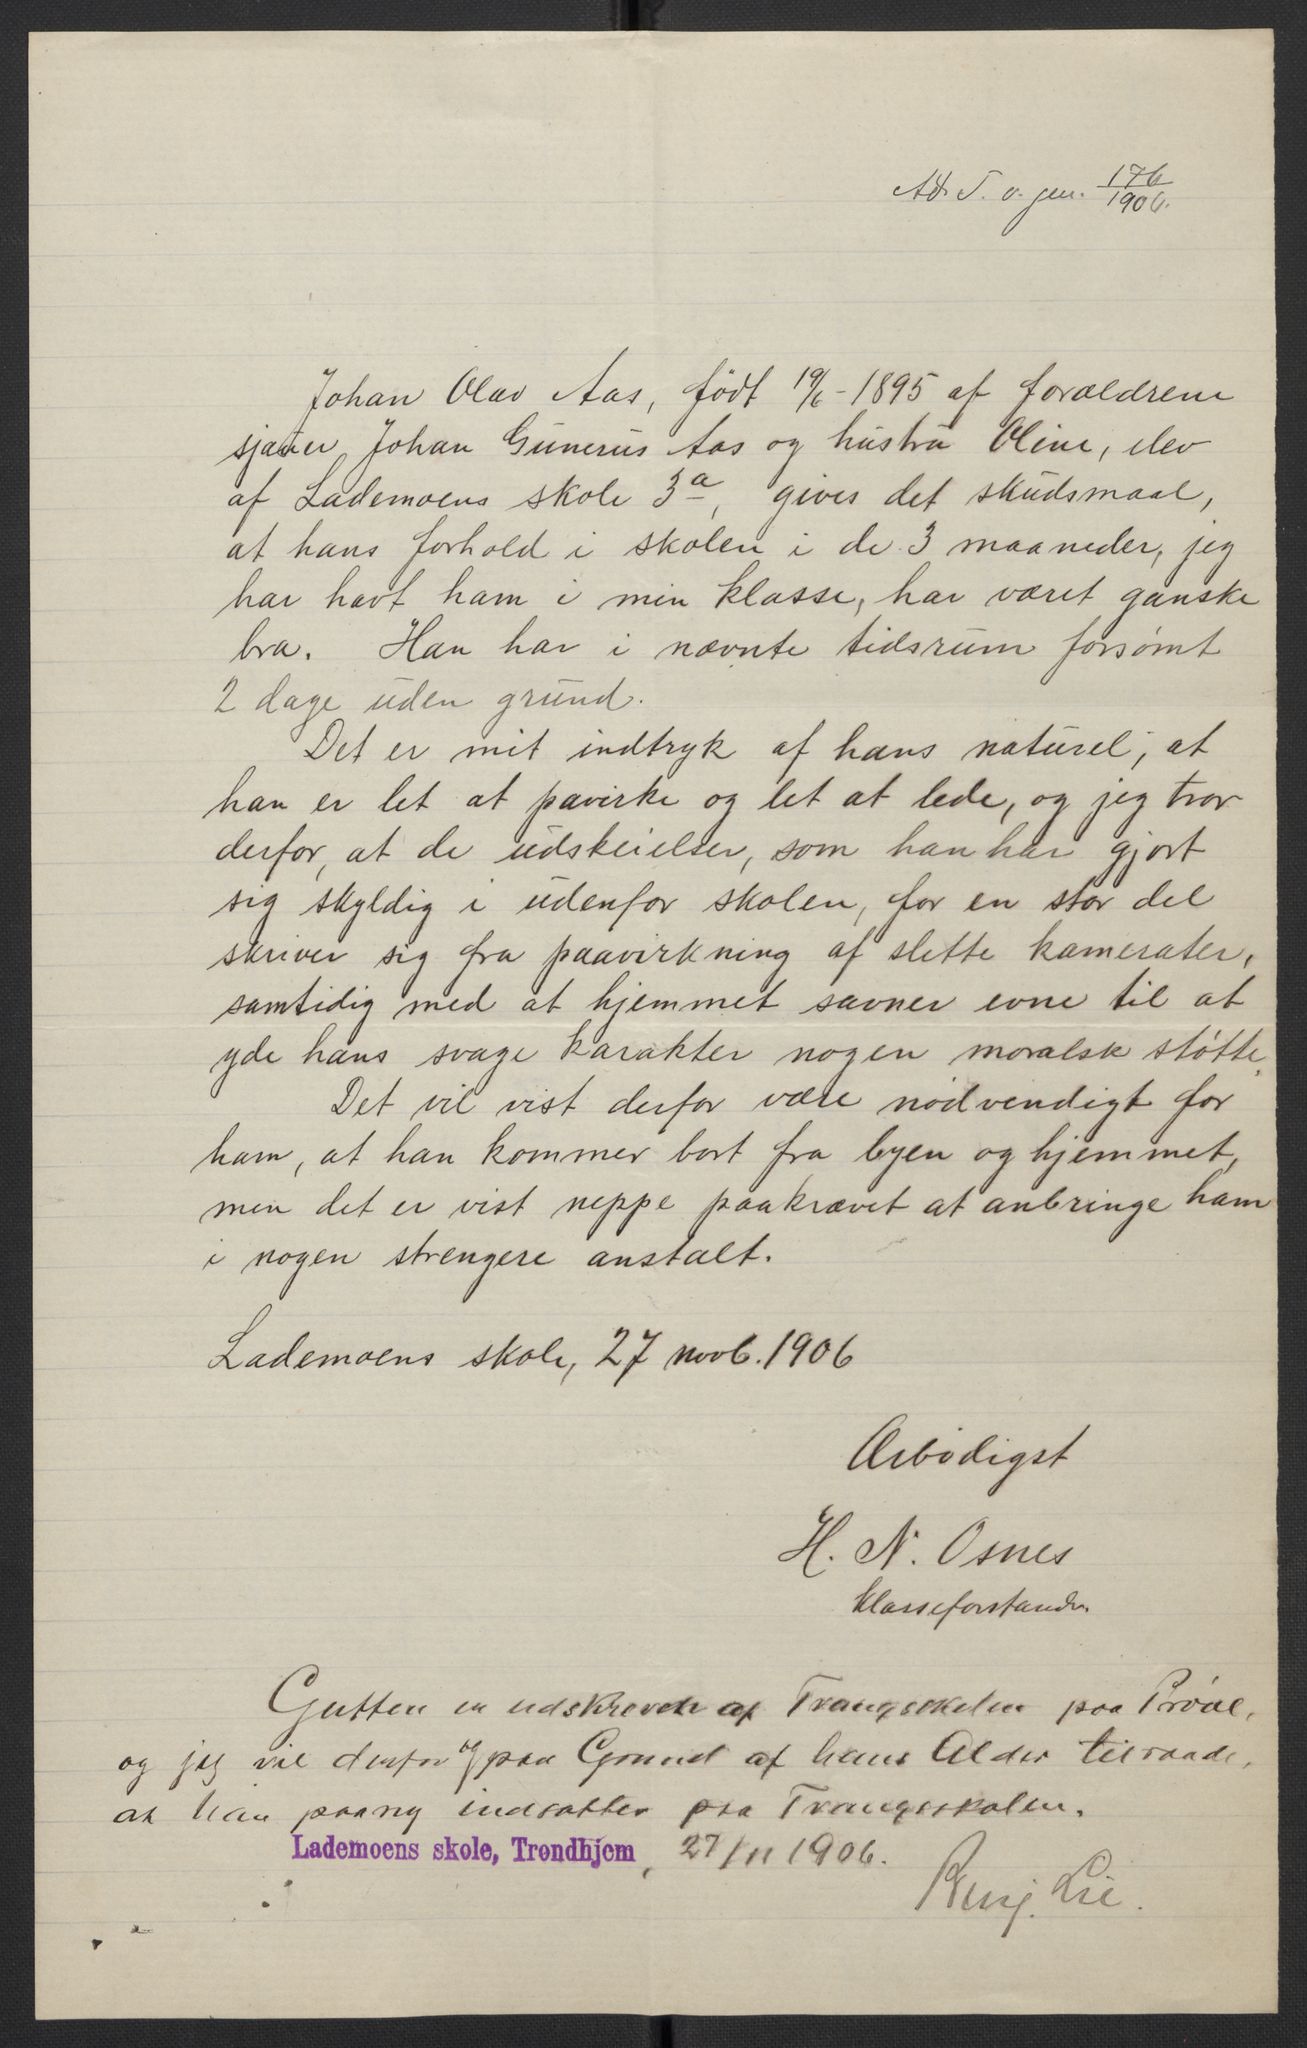 Ad. T. v. gen. 176/1906.
Johan Olav Aas, født 19/6-1895 af forældrene
sjauer Johan Gunerus Aas og hustru Oline, elev
af Lademoens skole 3a, gives det skudsmaal,
at hans forhold i skolen i de 3 maaneder, jeg
har havt ham i min klasse, har været ganske
bra. Han har i nævnte tidsrum forsømt
2 dage uden grund.
Det er mit indtryk af hans naturel, at
han er let at pavirke og let at lede, og jeg tror
derfor, at de udskeielser, som han har gjort
sig skyldig i udenfor skolen, for en stor del
skriver sig fra paavirkning af slette kamerater,
samtidig med at hjemmet savner evne til at
yde hans svage karakter nogen moralsk støtte.
Det vil vist derfor være nødvendigt for
ham, at han kommer bort fra byen og hjemmet,
men det er vist neppe paakrævet at anbringe ham
i nogen strengere anstalt.
Lademoens skole, 27 novb. 1906
Ærbødigst
H. N. Osnes
klasseforstander.
Gutten er udskreven af Tvangsskolen paa Prøve,
og jeg vil derfor og paa Grund af hans Alder tilraade,
at han paany indsættes paa Tvangsskolen.
Lademoens skole, Trondhjem, 27/11 1906.
Benj. Lie.